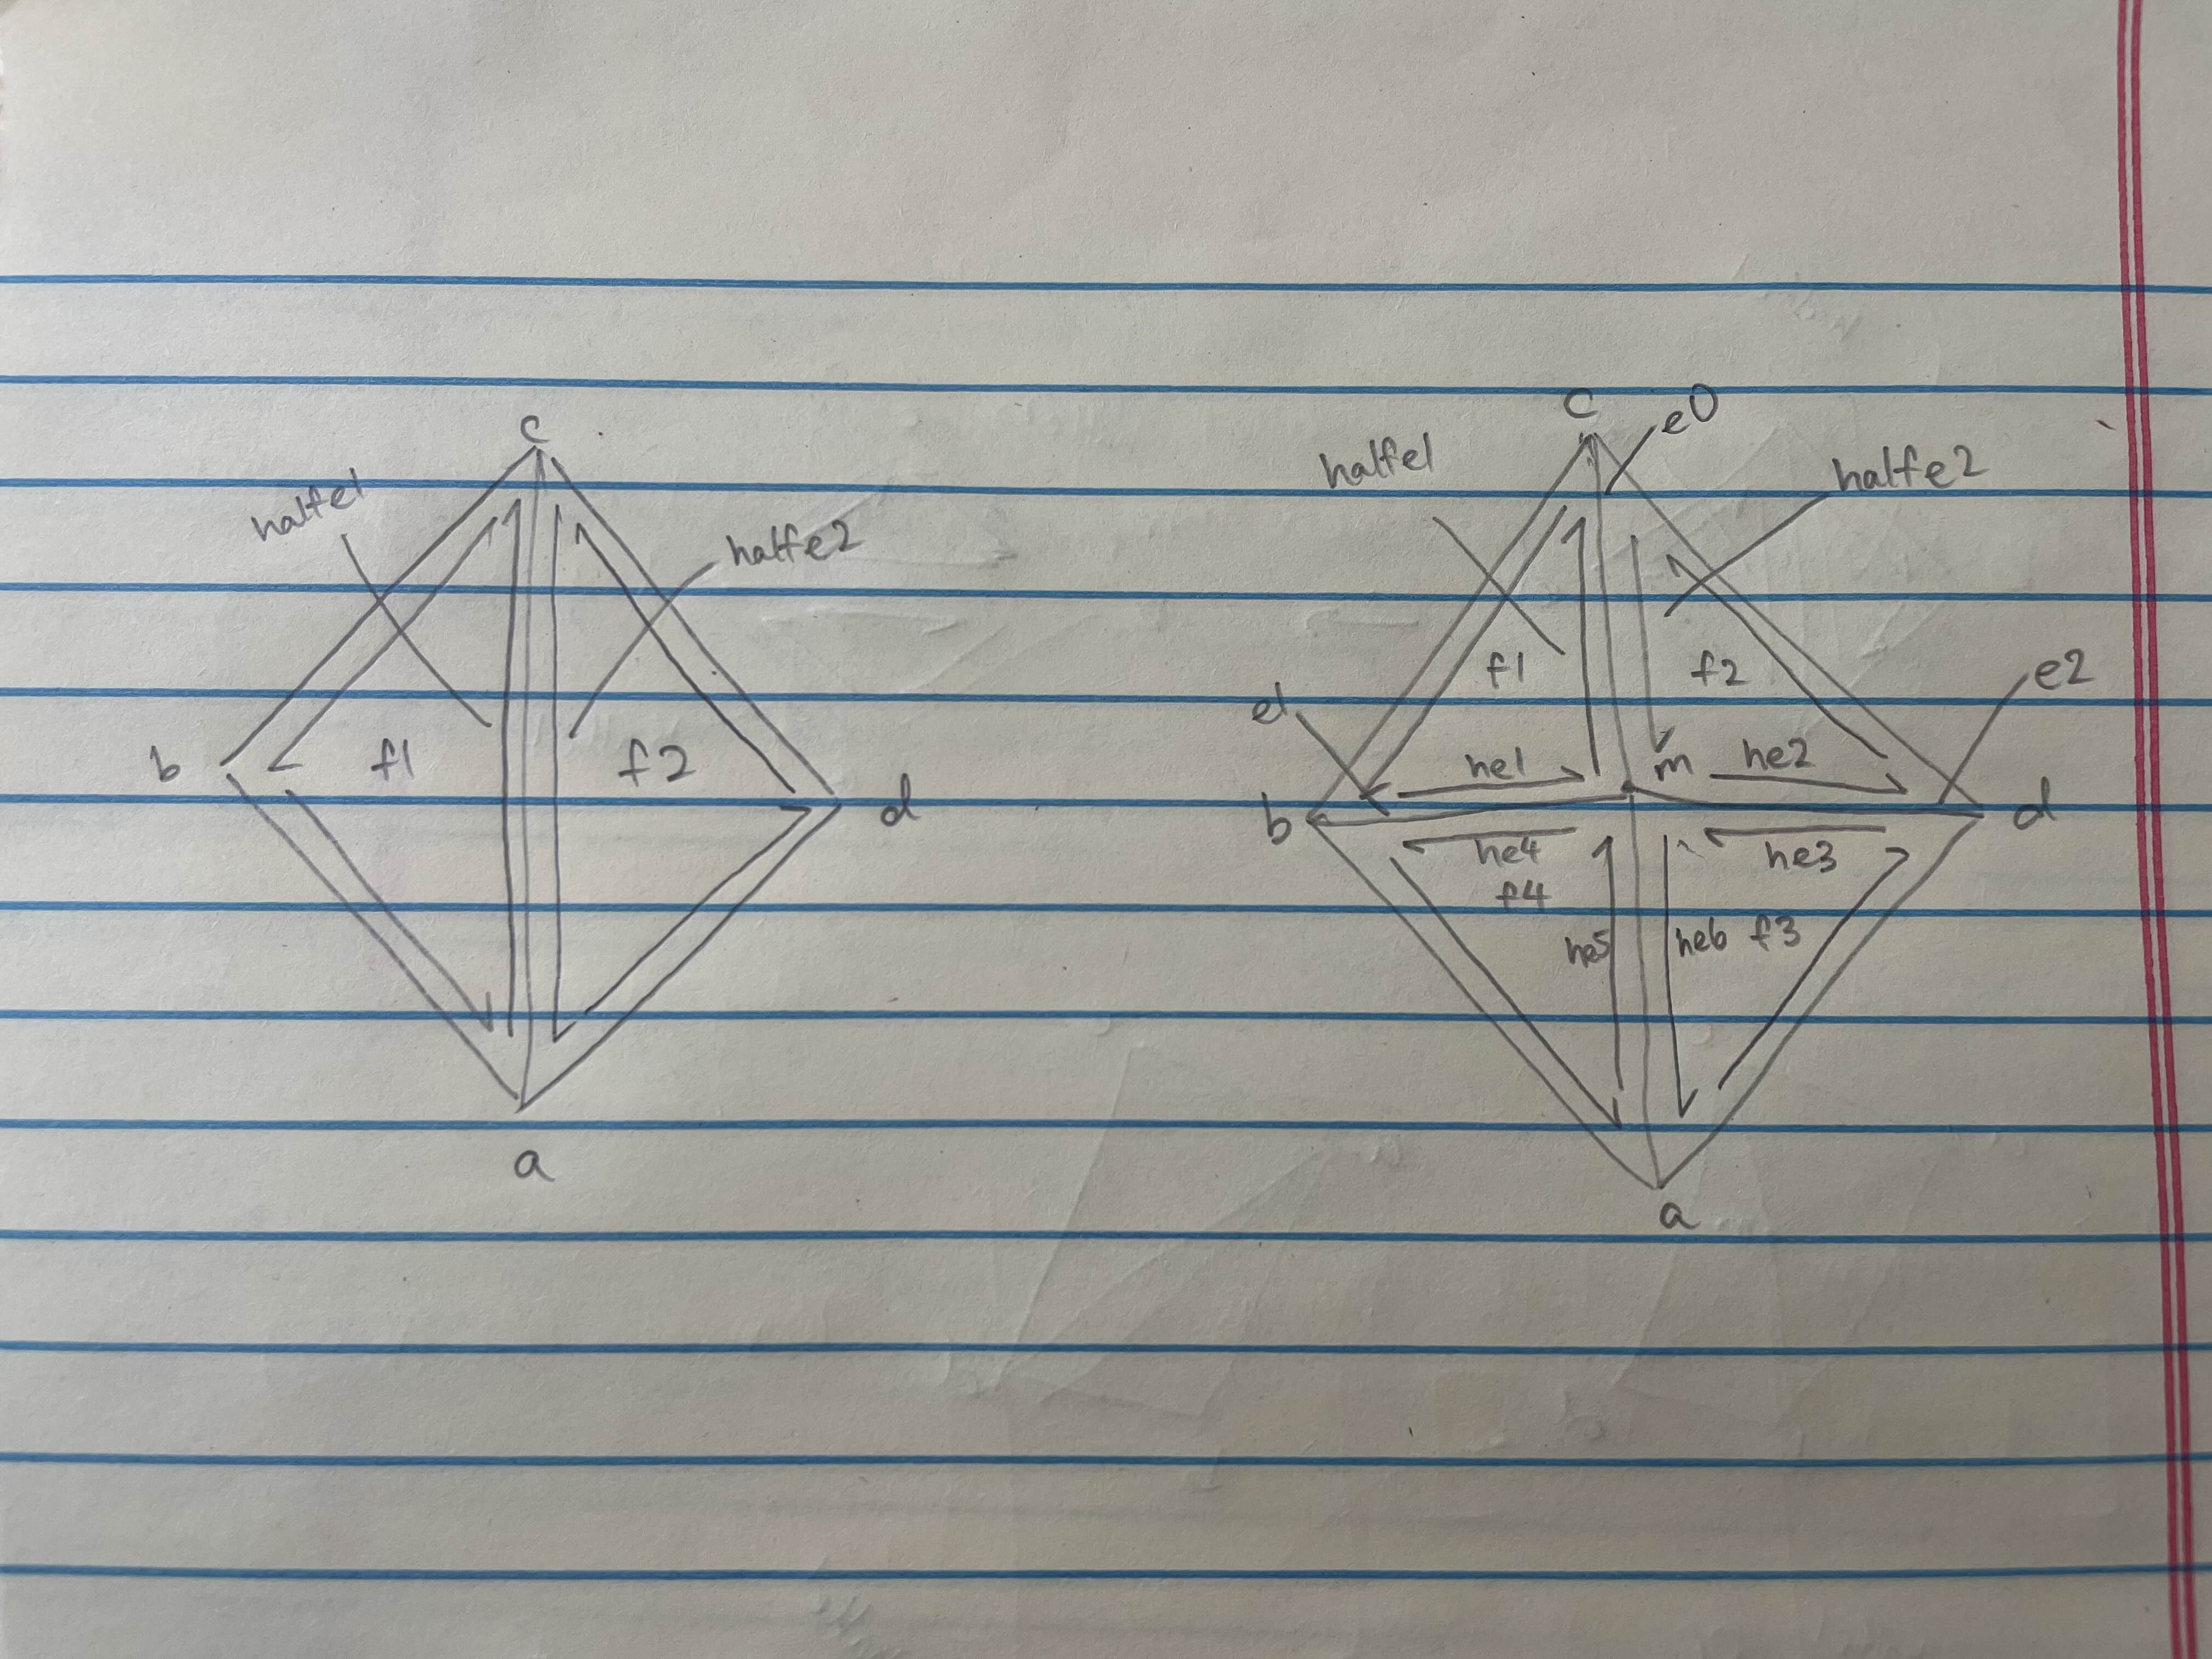 c
halfe1
halfe2
b
f1
f2
d
a
c
e0
halfe1
halfe2
f1
f2
e2
e1
he1
m
he2
b
d
he4
he3
f4
he5
he6
f3
a